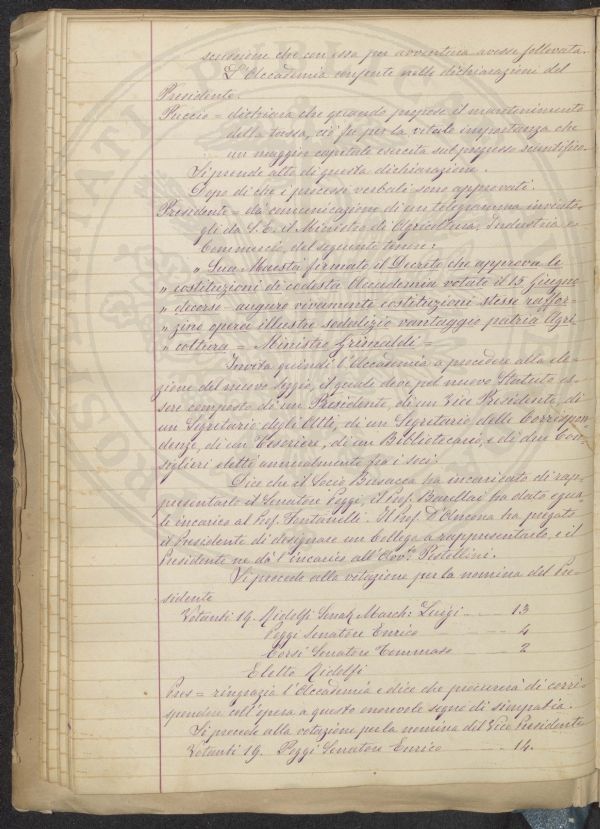 scussione che con essa per avventura avesse sollevata.
L'Accademia consente nelle dichiarazioni del
Presidente.
Puccio = dichiara che quando propose il mantenimento
della tassa, ciò fu per la vitale importanza che
un maggior capitale esercita sul progresso scientifico.
Si prende atto di questa dichiarazione.
Dopo di che i processi verbali sono approvati.
Presidente = dà comunicazione di un telegramma inviato-
gli da S. E. il Ministro di Agricoltura, Industria e
Commercio, del seguente tenore:
" Sua Maestà firmato il Decreto che approva le
" costituzioni di codesta Accademia votate il 15 Giugno
" decorso - auguro vivamente costituzioni stesse raffor-
" zino opera illustre sodalizio vantaggio patria Agri
" coltura = Ministro Grimaldi =
Invita quindi l'Accademia a procedere alla ele-
zione del nuovo Seggio, il quale deve pel nuovo Statuto es-
sere composto di un Presidente, di un Vice Presidente, di
un Segretario degli Atti, di un Segretario delle Corrispon-
denze, di un Tesoriere, di un Bibliotecario, e di due Con-
siglieri eletti annualmente fra i soci.
Dice che il Socio Busacca ha incaricato di rap-
presentarlo il Senatore Poggi, il Prof. Barellai ha dato egua-
le incarico al Prof. Fontanelli. Il Prof. D'Ancona ha pregato
il Presidente di designare un Collega a rappresentarlo, e il
Presidente ne dà l'incarico all'Avv. Pestellini.
Si procede alla votazione per la nomina del Pre-
sidente
Votanti 19. Ridolfi Senat. March: Luigi 13
Poggi Senatore Enrico 4
Corsi Senatore Tommaso 2
Eletto Ridolfi
Pres = ringrazia l'Accademia e dice che procurerà di corri-
spondere coll'opera a questo onorevole segno di simpatia.
Si procede alla votazione per la nomina del Vice Presidente
Votanti 19. Poggi Senatore Enrico 14.